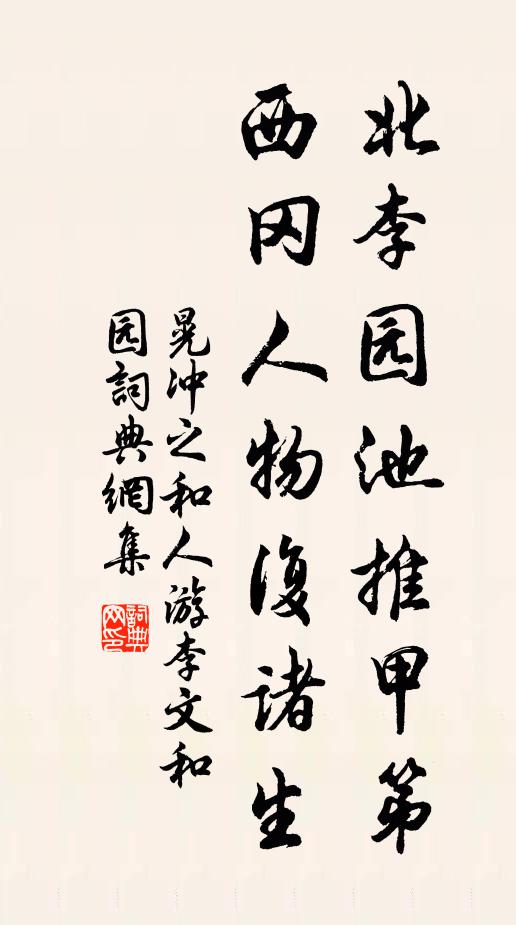 北李园池推甲第
西冈人物復诸生
晁冲之和人游李文和
园詞典網集
詞典网印